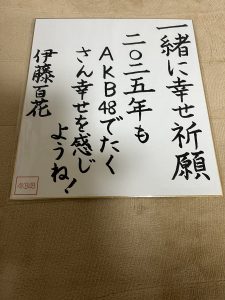 一緒に幸せ祈願
二〇二五年も
AKB48でたく
さん幸せを感じ
ようね！
伊藤百花